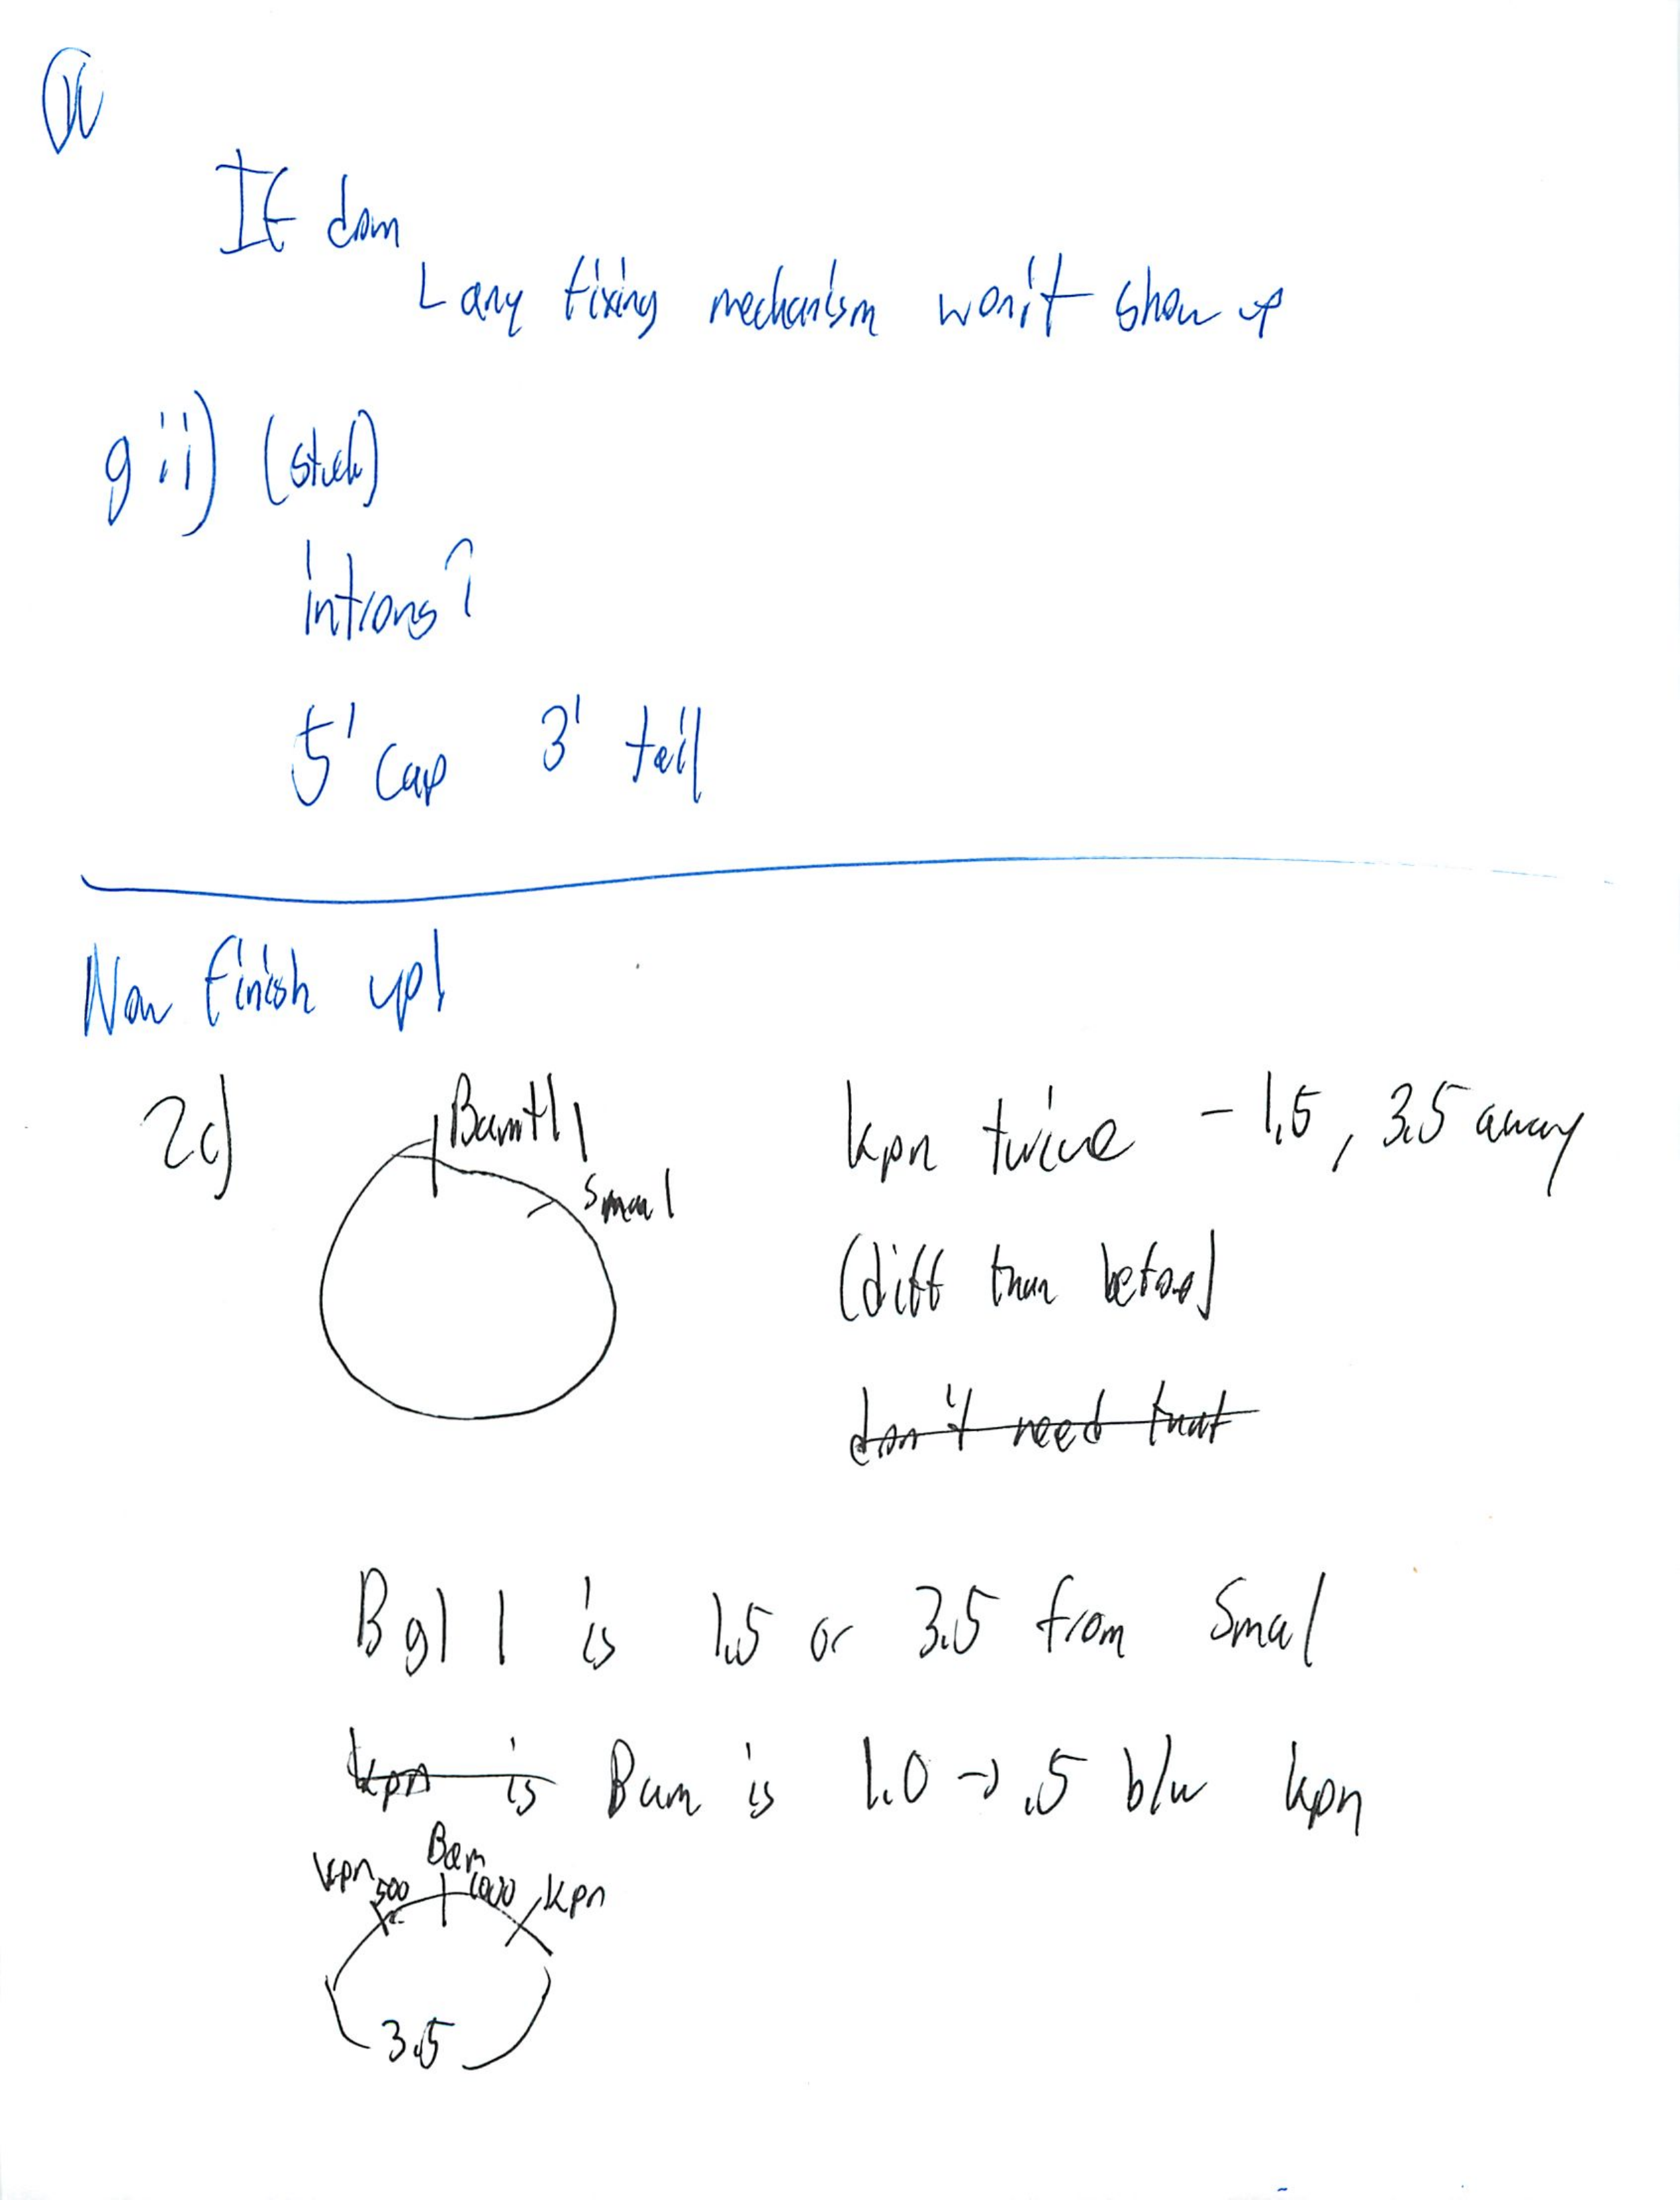 If dom
L any fixing mechanism won't show up
g ii) (stuck)
introns?
5' cap 3' tail
Now finish up!
2c)
BamH1
Sma1
kpn twice - 1.5, 3.5 away
(diff than before)
don't need that
Bgl 1 is 1.5 or 3.5 from Sma1
kpn is Bam is 1.0 → .5 b/w kpn
kpn 500 Bam 1000 kpn
3.5